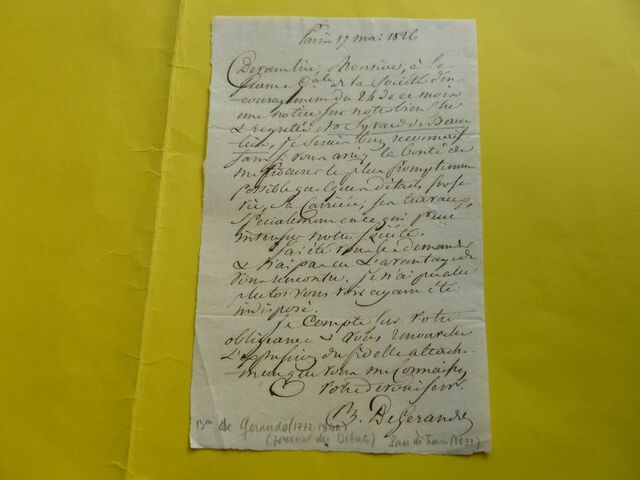 Paris 17 mai 1826
Devant lire, Monsieur, à la
Séance Gale de la Société d'en
couragement du 24 de ce mois
une notice sur notre bien cher
& regretté Mr
je serais bien reconnaif
sant si vous aviez la bonté de
me procurer le plus promptement
possible quelques détails sur sa
vie, sa carrière, ses travaux,
Spécialement en ce qui peut
intéresser notre Société.
J'ai été vous le demander
& n'ai pas eu l'avantage de
vous rencontrer. je n'ai pu aller
plutot vous voir ayant été
indisposé.
Je compte sur votre
obligeance & vous renouvelle
L'expression du fidelle attach-
ment que vous me connaissez
votre dévoué serv.
B. DeGerando
Bon de Gerando (1772-1842)
(Journal des Débats) Pair de France (1837)